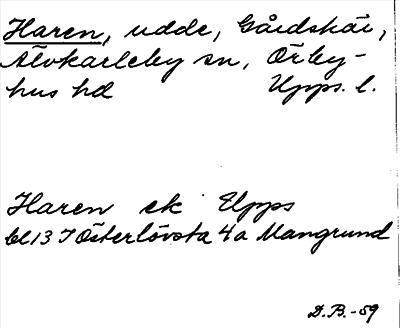 Haren, udde, Gårdskär,
Älvkarleby sn, Örby-
hus hd Upps. l.
Haren ek Upps
bl 13 I Österlövsta 4a Mangrund
D.B.-59